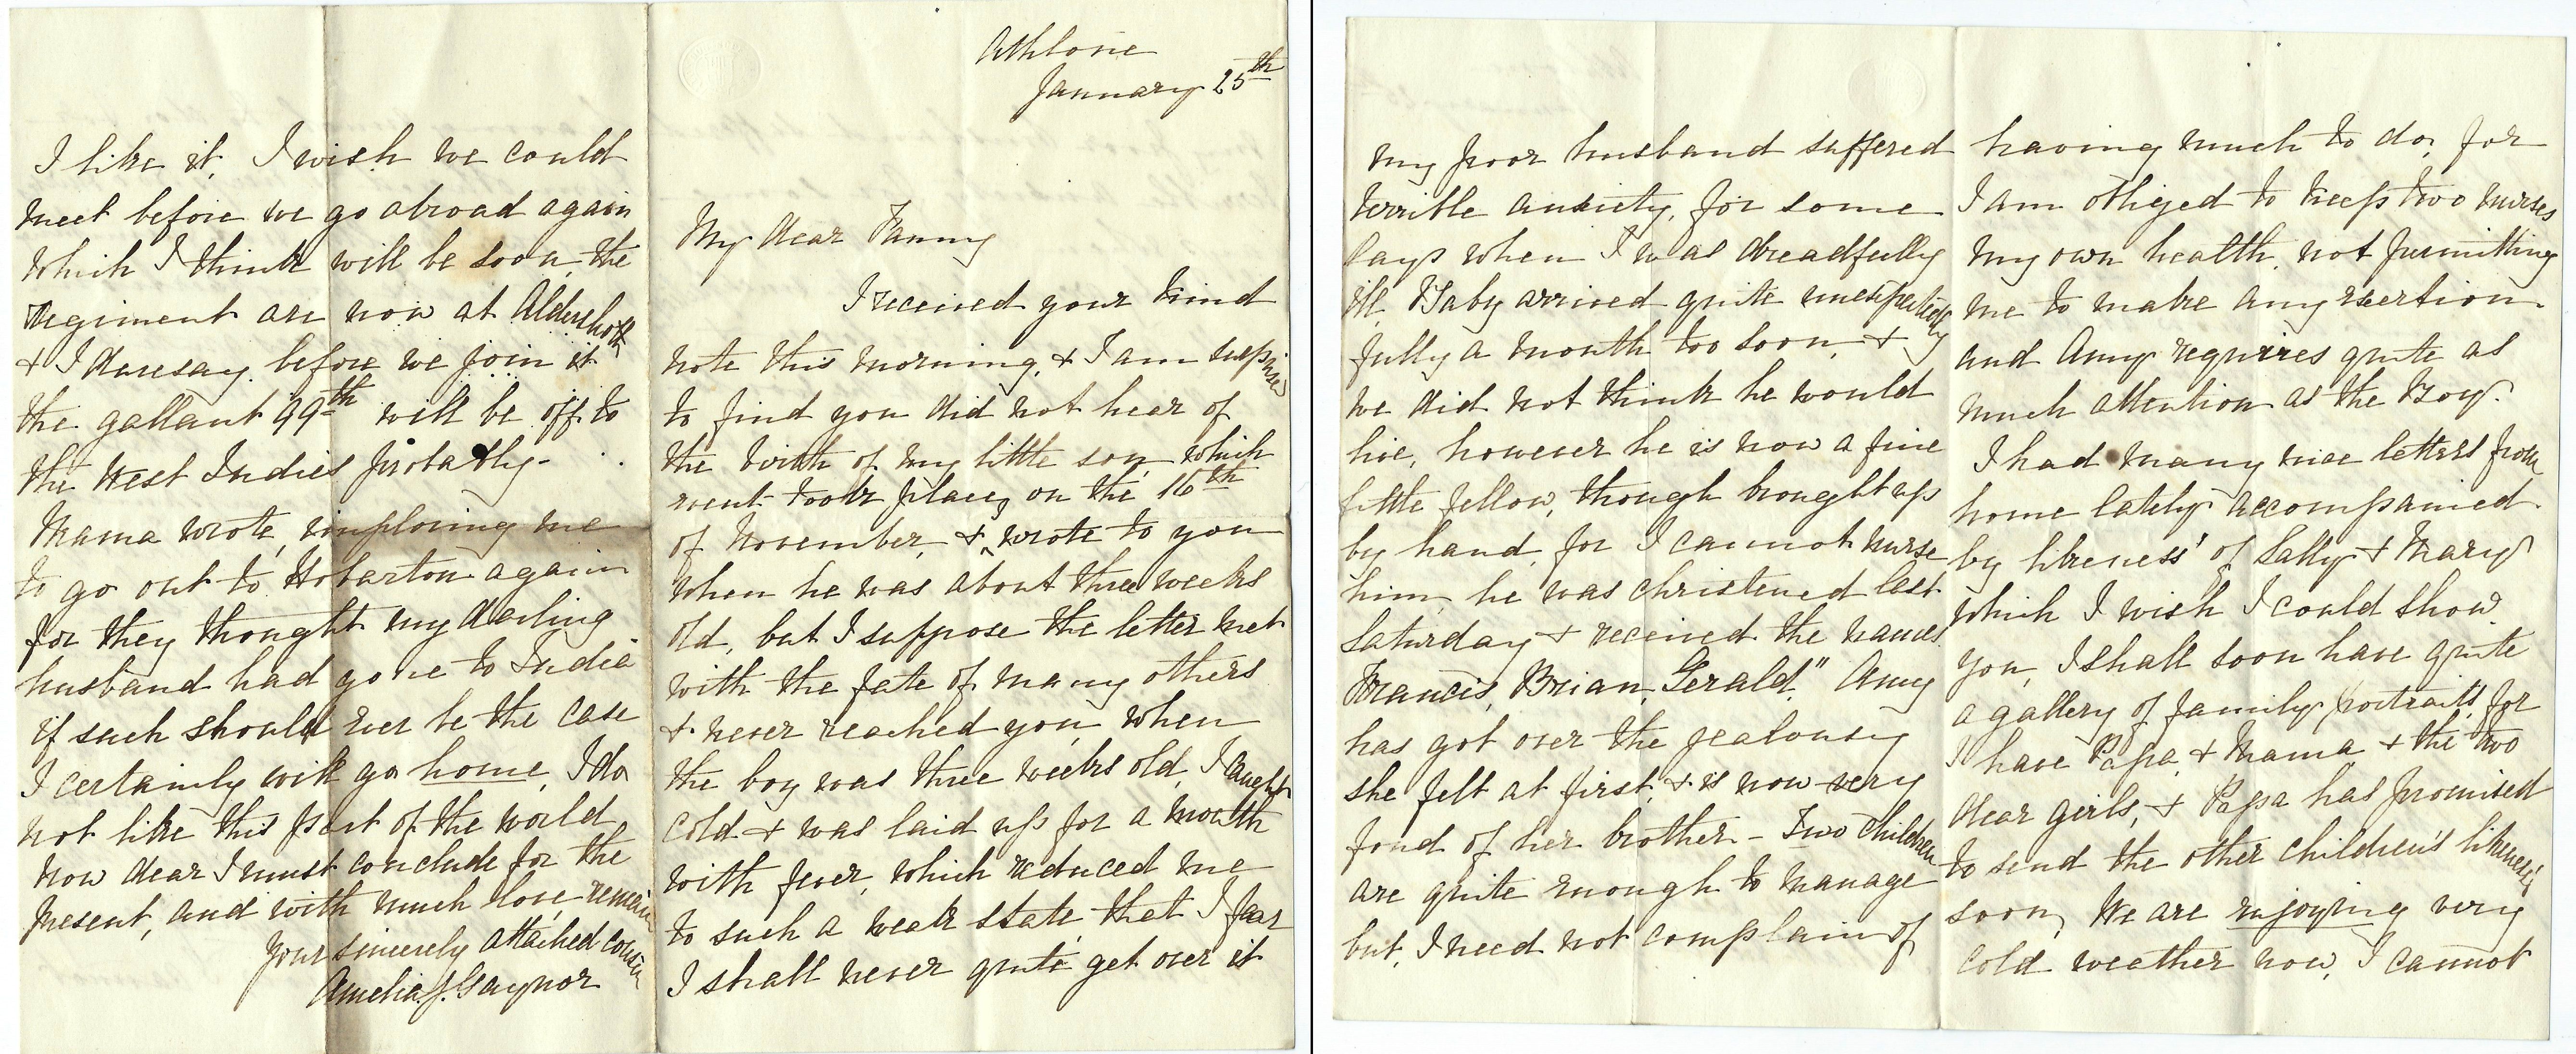 Athlone
January 25th
My dear Fanny
I received your kind
note this morning, & I am surprised
to find you did not hear of
the birth of my little son, which
event took place, on the 16th
of November, & wrote to you
when he was about three weeks
old, but I suppose the letter met
with the fate of many others
& never reached you, when
the boy was three weeks old, I caught
cold & was laid up for a month
with fever, which reduced me
to such a weak state, that I fear
I shall never quite get over it
my poor husband suffered
terrible anxiety, for some
days when I was dreadfully
ill. Baby arrived quite unexpectedly
fully a month too soon, &
we did not think he would
live, however he is now a fine
little fellow, though brought up
by hand, for I cannot nurse
him, he was christened last
Saturday & received the names
Francis, Brian, Gerald." Amy
has got over the jealousy
she felt at first, & is now very
fond of her brother - Two children
are quite enough to manage
but, I need not complain of
having much to do, for
I am obliged to keep two nurses
my own health, not permitting
me to make any exertion
and Amy requires quite as
much attention as the Boy.
I had many nice letters from
home lately accompanied
by likeness' of Sally & Mary
which I wish I could show
you, I shall soon have quite
a gallery of family portraits, for
I have Papa & Mama & the two
dear girls, & Papa has promised
to send the other children's likeness's
soon, We are enjoying very
cold weather now, I cannot
I like it, I wish we could
meet before we go abroad again
which I think will be soon, the
Regiment are now at Aldershott
& I daresay before we join it
the gallant 99th will be off to
the West Indies probably -
Mama wrote, imploring me
to go out to Hobarton again
for they thought my darling
husband had gone to India
if such should ever be the case
I certainly will go home, I do
not like this part of the world
Now dear I must conclude for the
present, and with much love remain
Your sincerely attached cousin
Amelia J. Gaynor